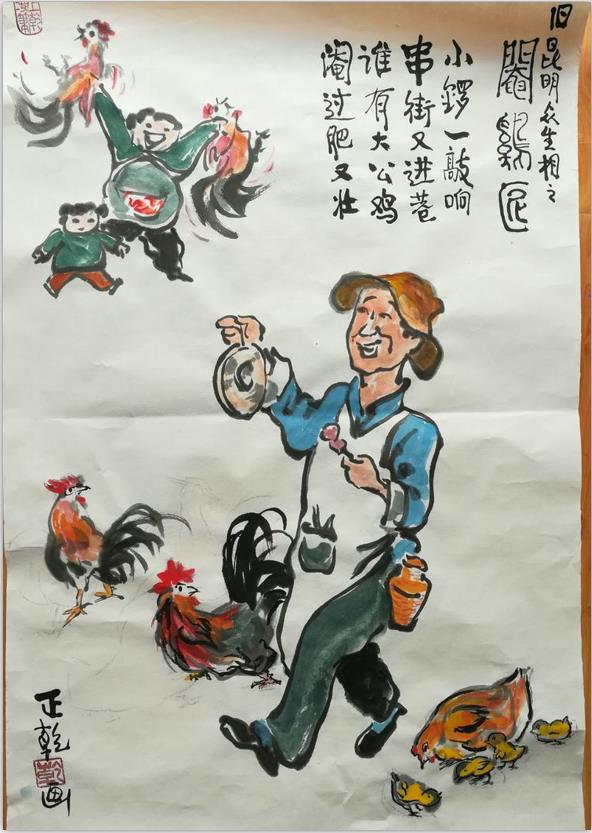 旧昆明众生相之
阉鸡匠
小锣一敲响
串街又进巷
谁有大公鸡
阉过肥又壮
正乾
乾
画